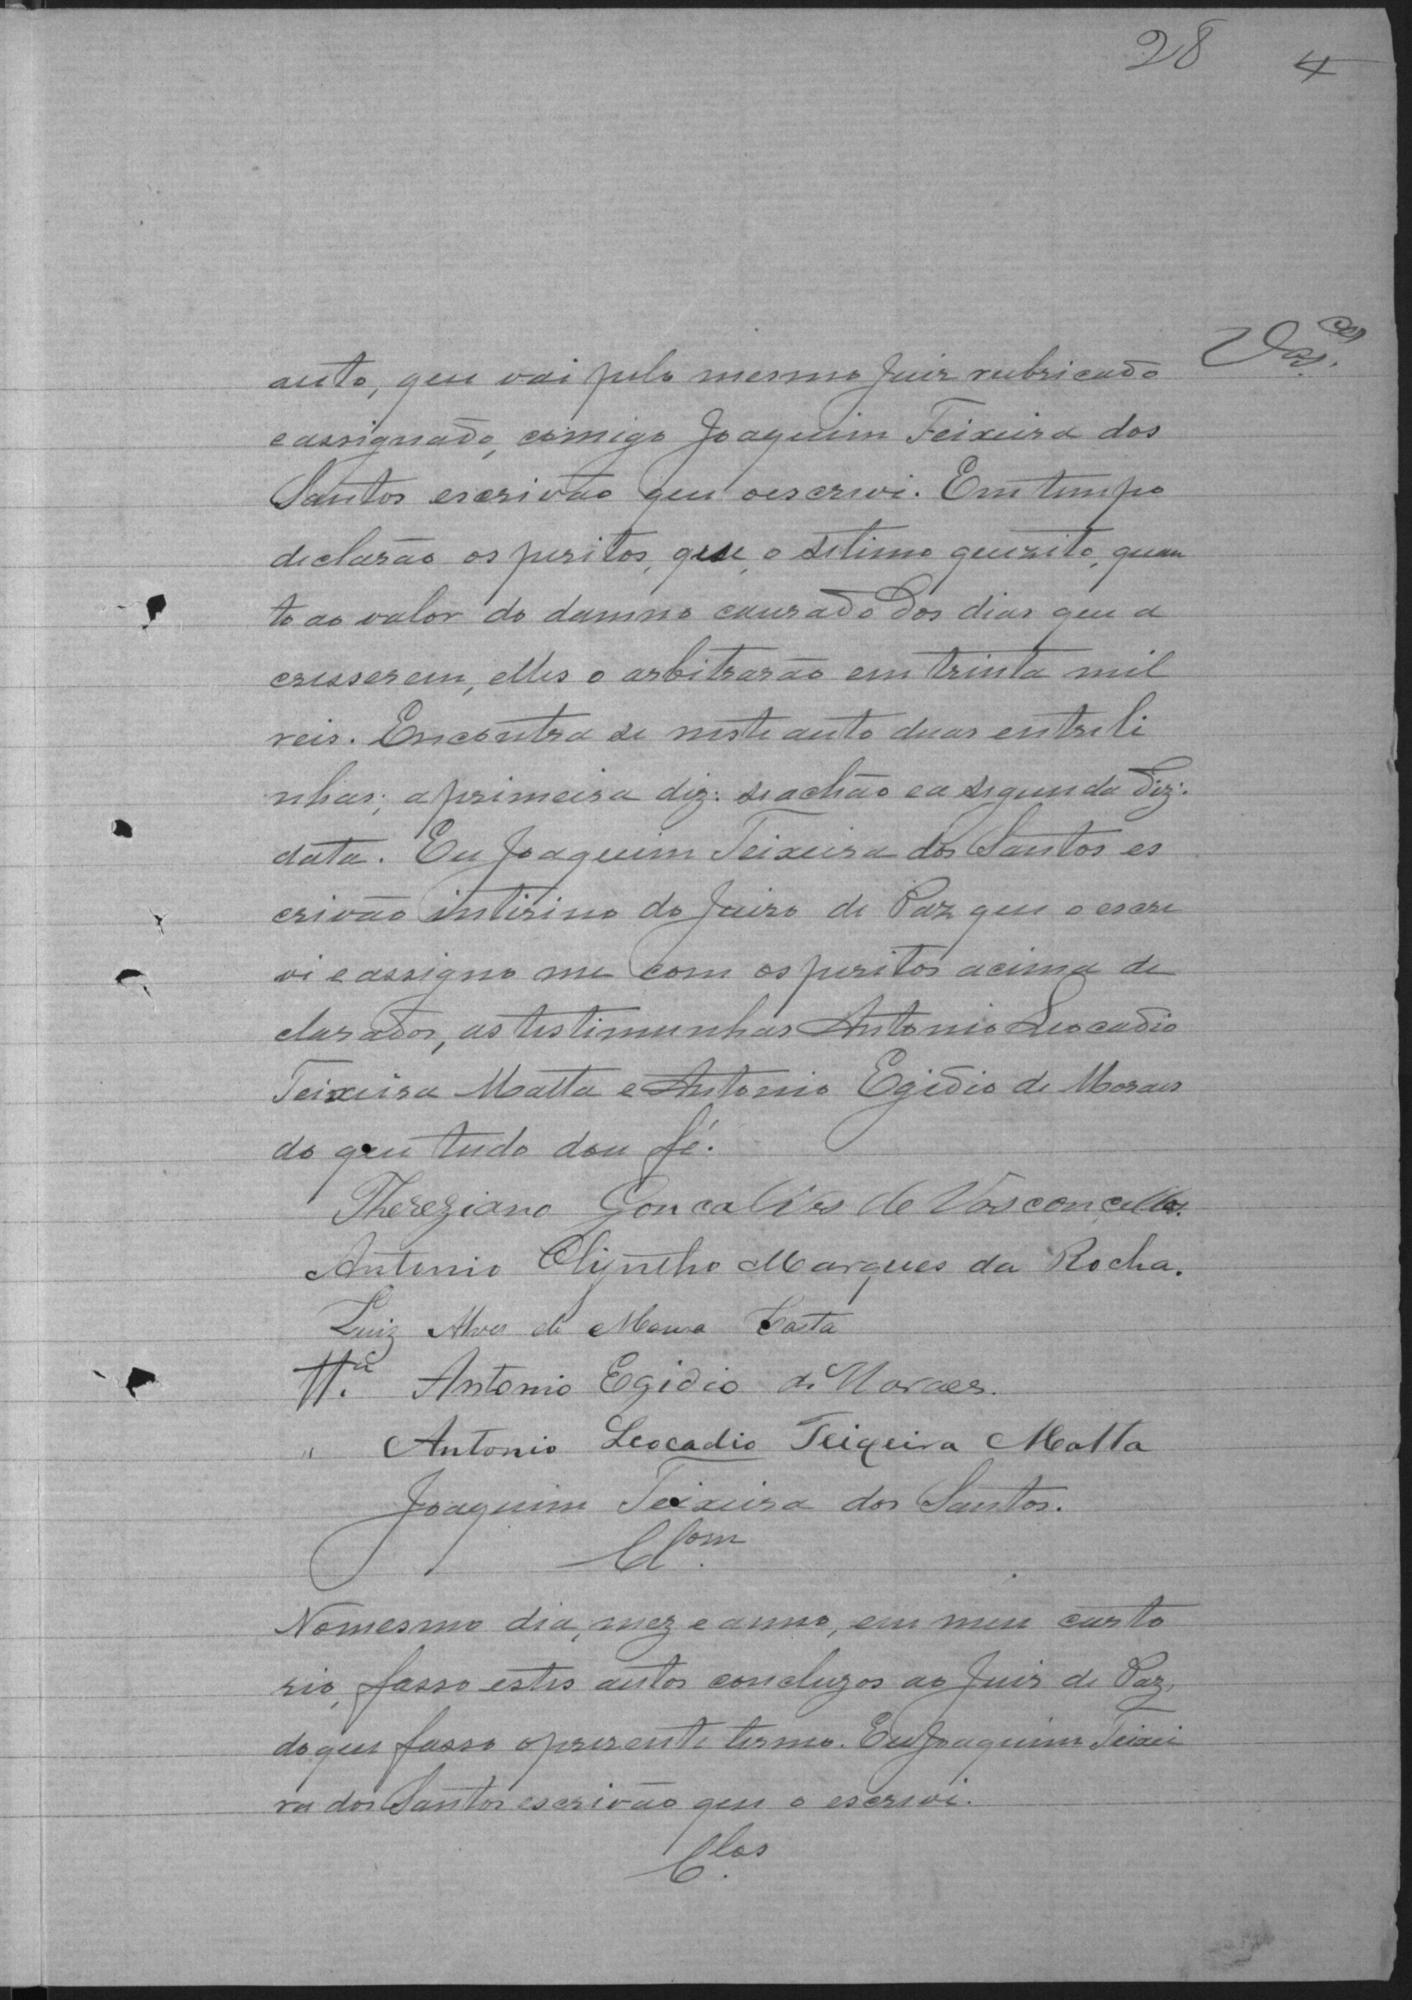 28 4
Vas.cos
auto, que vai pelo mesmo Juiz rubricado
e assignado, comigo Joaquim Teixeira dos
Santos escrivão que oescrevi. Em tempo
declarão os peritos, que, o setimo quezito, quan
to ao valor do damno causado dos dias que a
cresserem, elles o arbitrarão em trinta mil
reis. Encontra se neste auto duas entreli
nhas; a primeira diz: se achão e a segunda diz:
data. Eu Joaquim Teixeira dos Santos es
crivão intirino do Juizo de Paz que o escre
vi e assigno me com os peritos acima de
clarados, as testimunhas Antonio Leocadio
Teixeira Malta e Antonio Egidio de Moraes
do que tudo dou fé.
Thereziano Goncalves de Vasconcellos.
Antonio Olyntho Marques da Rocha.
Luiz Alves de Moura Costa
TT.a Antonio Egidio de Moraes.
" Antonio Leocadio Teixeira Malta
Joaquim Teixeira dos Santos.
Cl.om
No mesmo dia, mez e anno, em meu carto
rio, fasso estes autos concluzos ao Juiz de Paz,
do que fasso o prezente termo. Eu Joaquim Teixei
ra dos Santos escrivão que o escrevi.
C.los